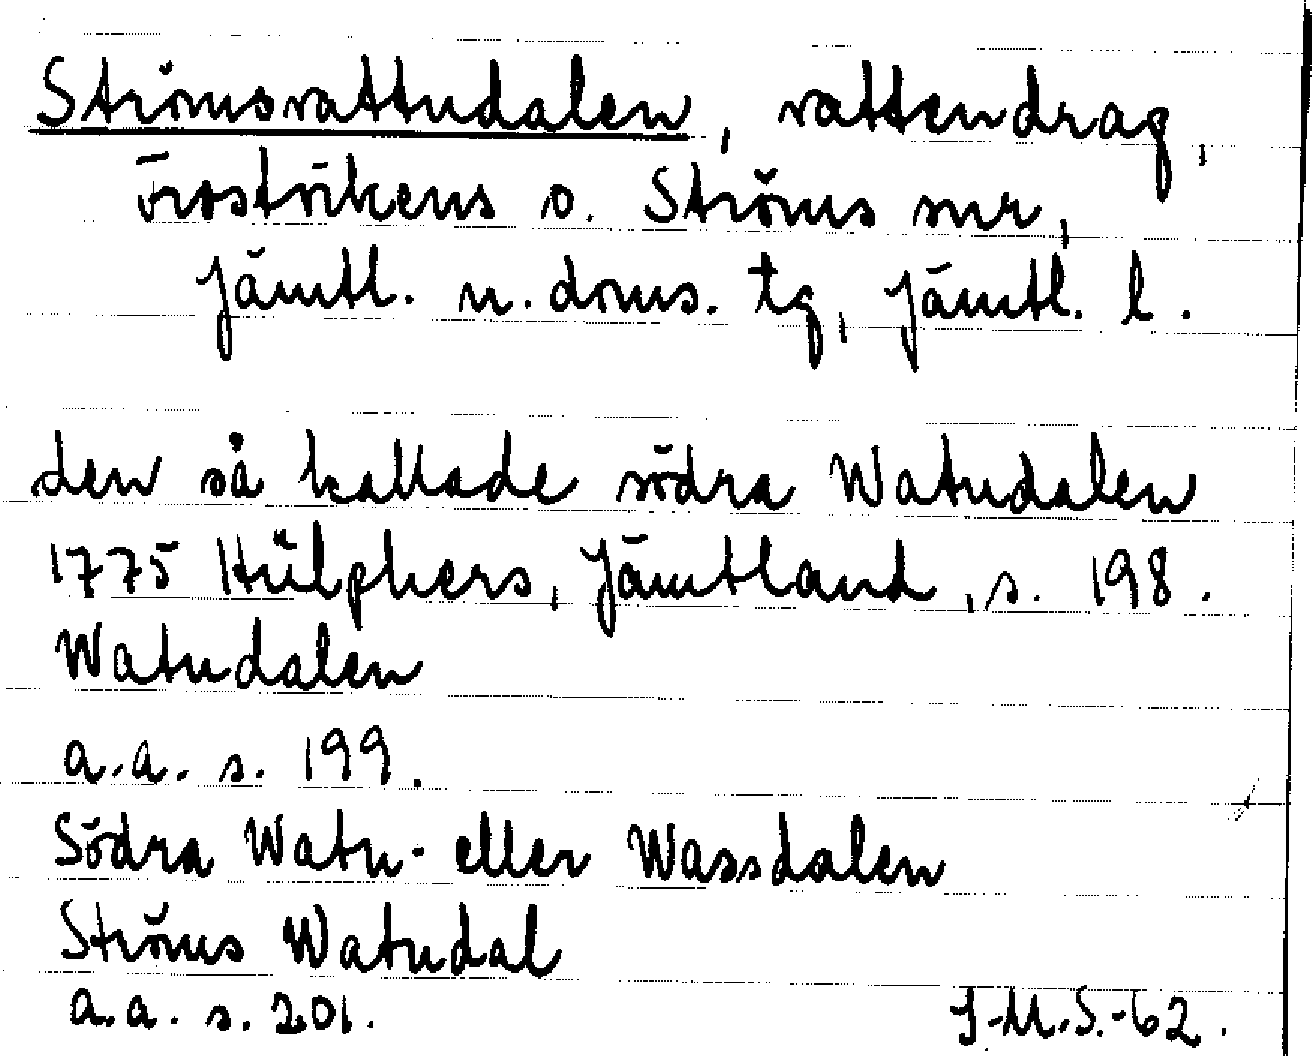 Strömsvattudalen, vattendrag,
Frostvikens o. Ströms snr,
Jämtl. n. doms. tg, Jämtl. l.
den så kallade södra Watudalen
1775 Hülphers, Jämtland, s. 198.
Watudalen
a.a. s. 199.
Södra Watu- eller Wassdalen
Ströms Watudal
a.a. s. 201.
J-M.S.-62.